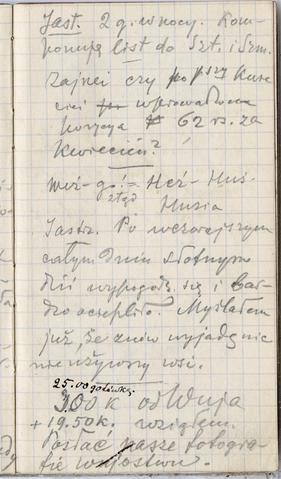 Jast. 2 g. w nocy. Kom-
ponuję list do Szt. i Szm.
zajnei czy po przy Kure
cici wprowadzona
pozycja 62 rs. za
Kwiecień?
woź-go! = Heź- Huś-
żłąd Husia
Jastrz. Po wczorajszym
całym dniu słotnym
dziś wypogodz. się i bar-
dzo ociepliło. Myślałem
już, że znów wyjadę nie
nieużywszy wsi.
25.00 gotówką.
300 K od Wuja
+ 19.50 K. wziąłem.
Posłać nasze fotogra-
fie